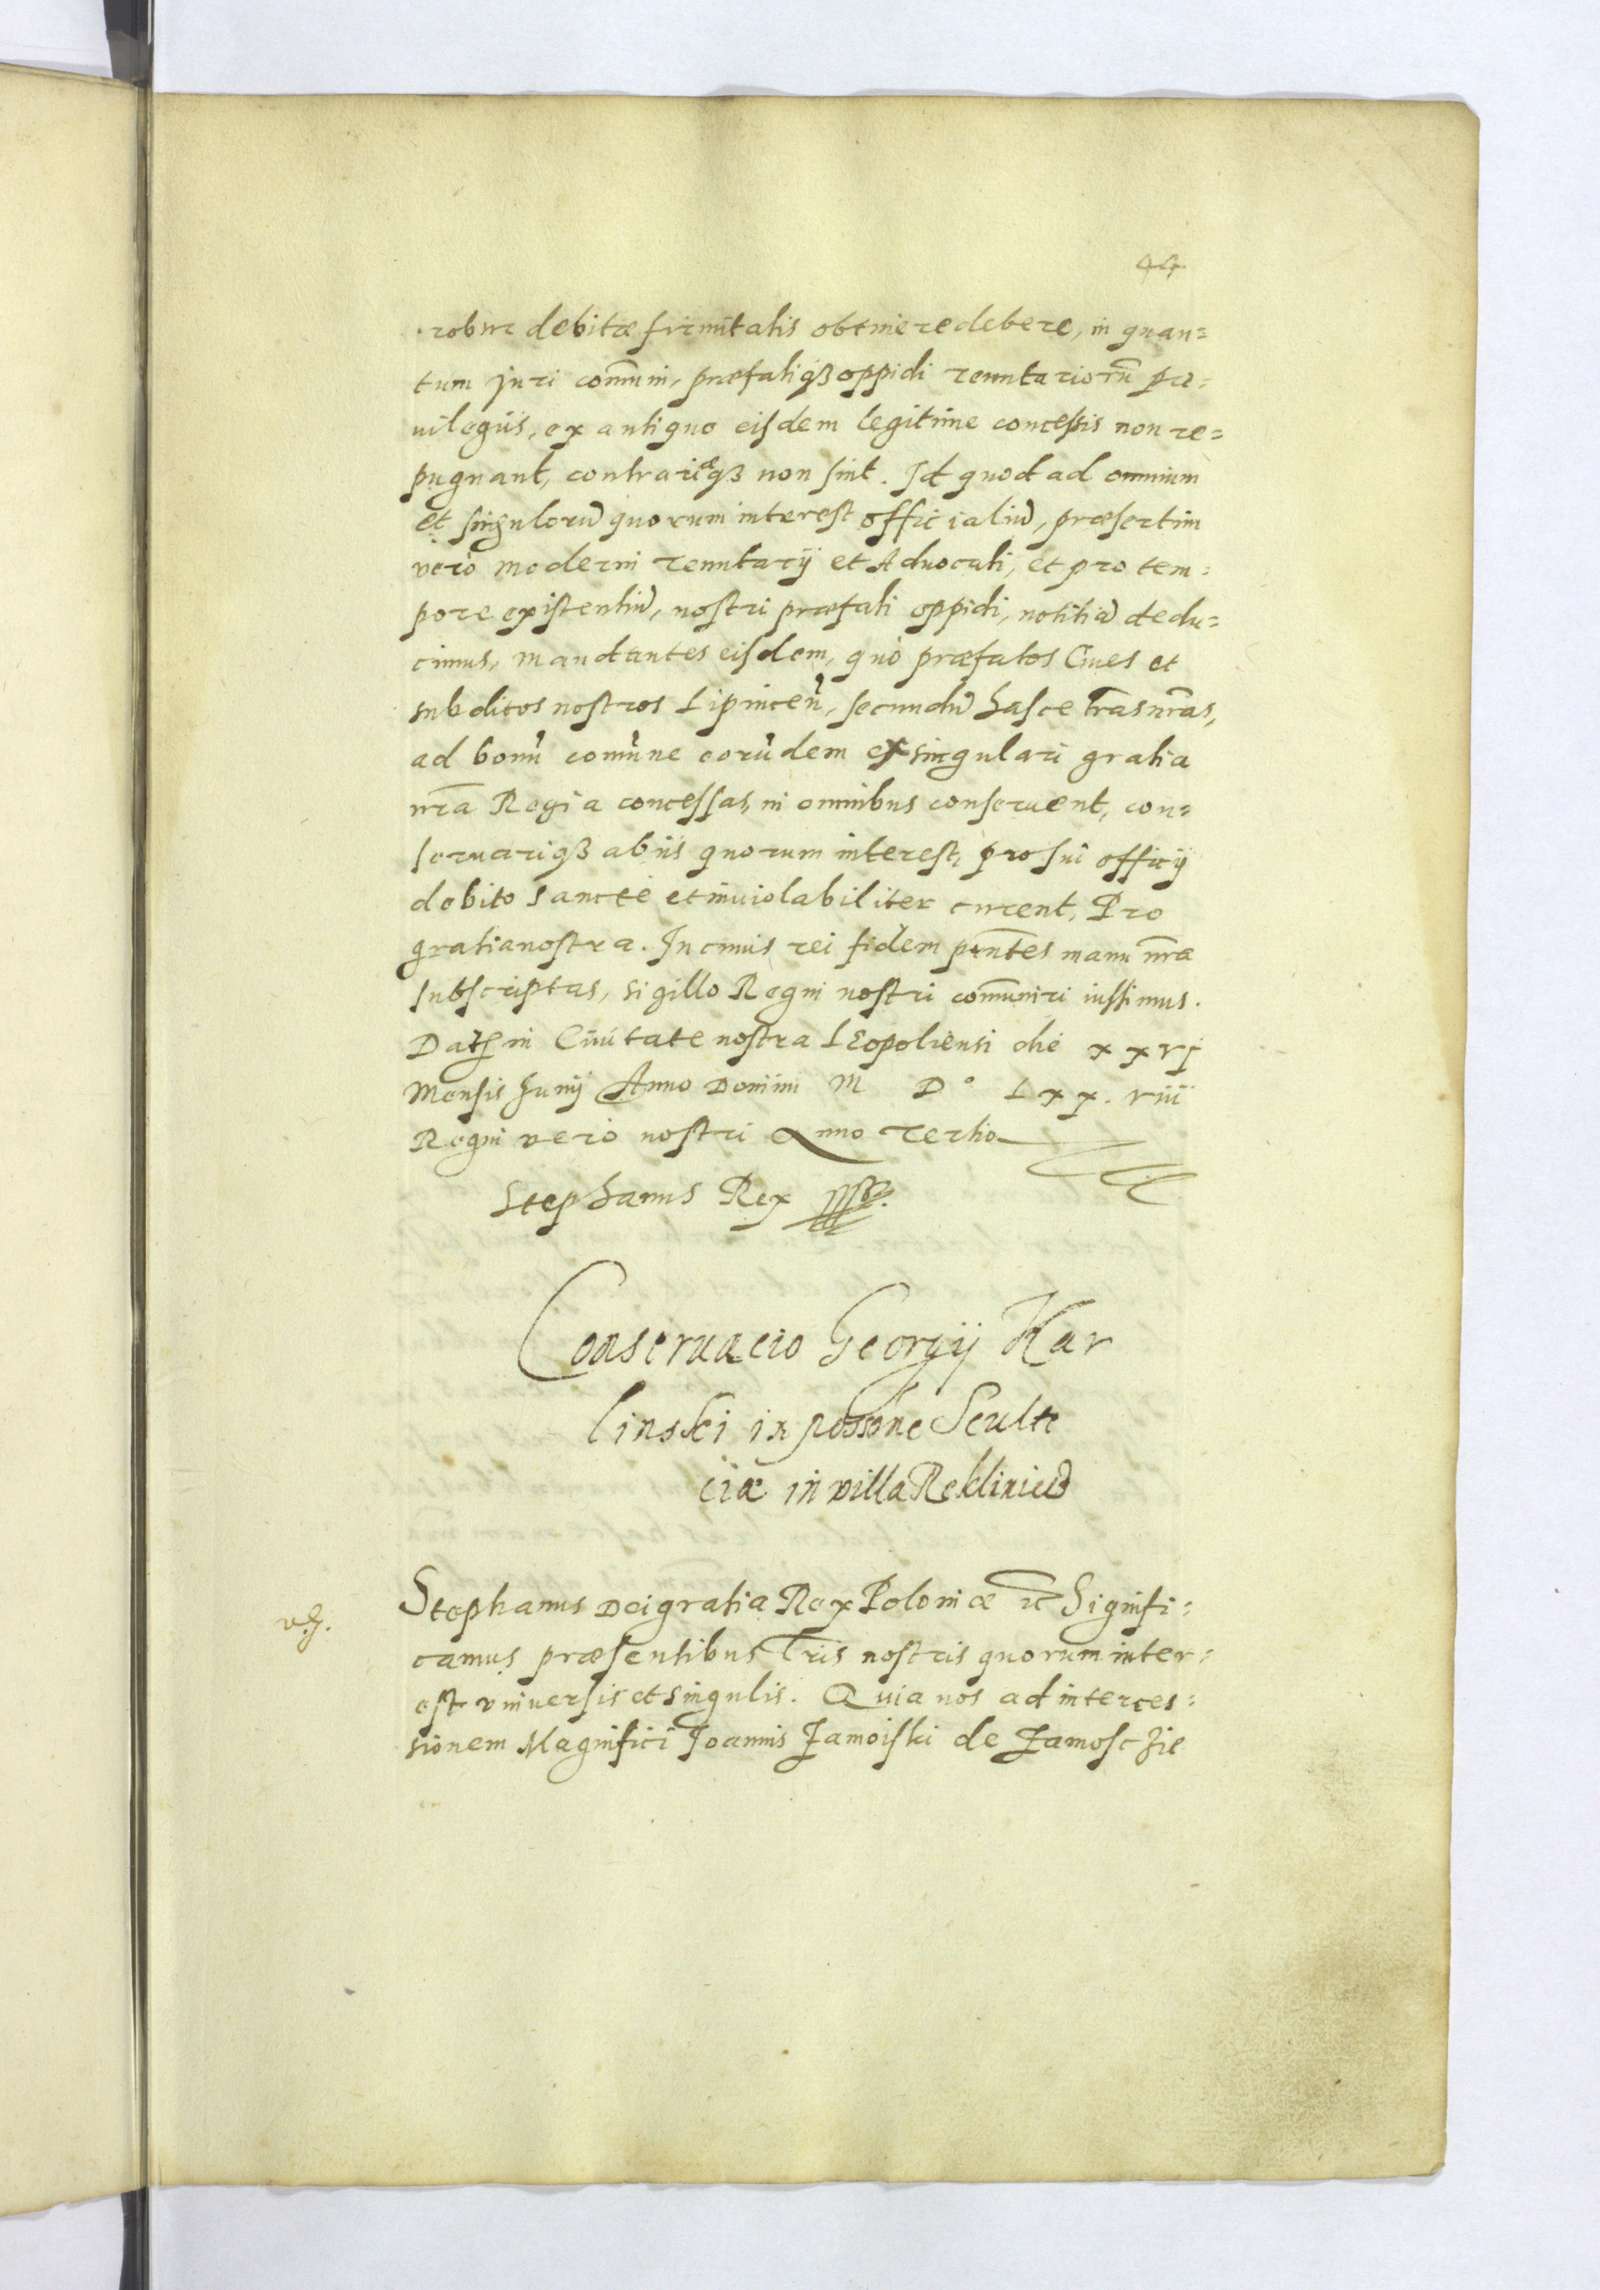 44
robur debitæ firmitatis obtinere debere, in quan=
tum juri com̄uni, præfatiqꝫ oppidi tenutariorū pri=
uilegiis, ex antiquo eisdem legitime concessis non re=
pugnant, contrariæqꝫ non sint. Id quod ad omnium
et singulorū quorum interest officialiū, præsertim
vero moderni tenutarij et Aduocati, et pro tem=
pore existentiū, nostri præfati oppidi, notitiā dedu=
cimus, mandantes eisdem, quò præfatos Ciues et
subditos nostros Lipinceñ, secundū hasce l̄ras nr̄as,
ad bonū com̄une eorūdem ex singulari gratia
nr̄a Regia concessas, in omnibus conseruent, con=
seruariqꝫ ab iis quorum interest, pro sui officij
debito sanctè et inuiolabiliter curent, Pro
gratia nostra. In cuius rei fidem pn̄tes manu nr̄a
subscriptas, sigillo Regni nostri com̄uniri iussimus.
Datꝭ in Ciuitate nostra Leopoliensi die xxvj
Mensis Junij Anno Domini M D° Lxx. viii
Regni vero nostri Anno Tertio
Stephanus Rex
Conseruacio Georgij Kar
linski in possone Sculte
ciæ in villa Rekliniecz
v.J.
Stephanus Dei gratia Rex Poloniæ ꝛc Signifi=
camus præsentibus l̄ris nostris quorum inter=
est vniuersis et singulis. Quia nos ad interces=
sionem Magnifici Joannis Zamoiski de Zamosczie